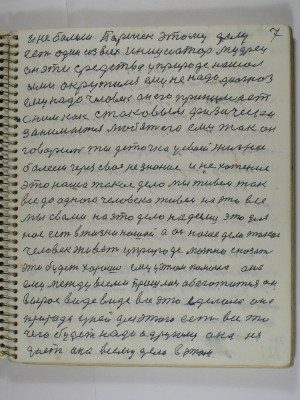 7
и не болит Паршек этому делу
есть один из всех инициатор мудрец
он эти средства в природе нашол
ими окружился ему не надо диагноз
ему надо человек он его принимает
с ним как с таковым физически
занимается любит его ему так он
говорит ты деточка у своей жизни
болееш через свое незнание и не хотение
это наша такое дело мы живем так
все до одного человека живем на это все
мы сваи на это дело надеемся это для
нас есть в жизни нашей а он наше дело такое
человек живет в природе можно сказать
это будет хорошо ему в этом помогло она
ему между всеми примулас обогатится он
вырос виде виде все это сделала она
природа у ней для этого есть все то
чего будет надо а другому она не
дает она всему дело в этом